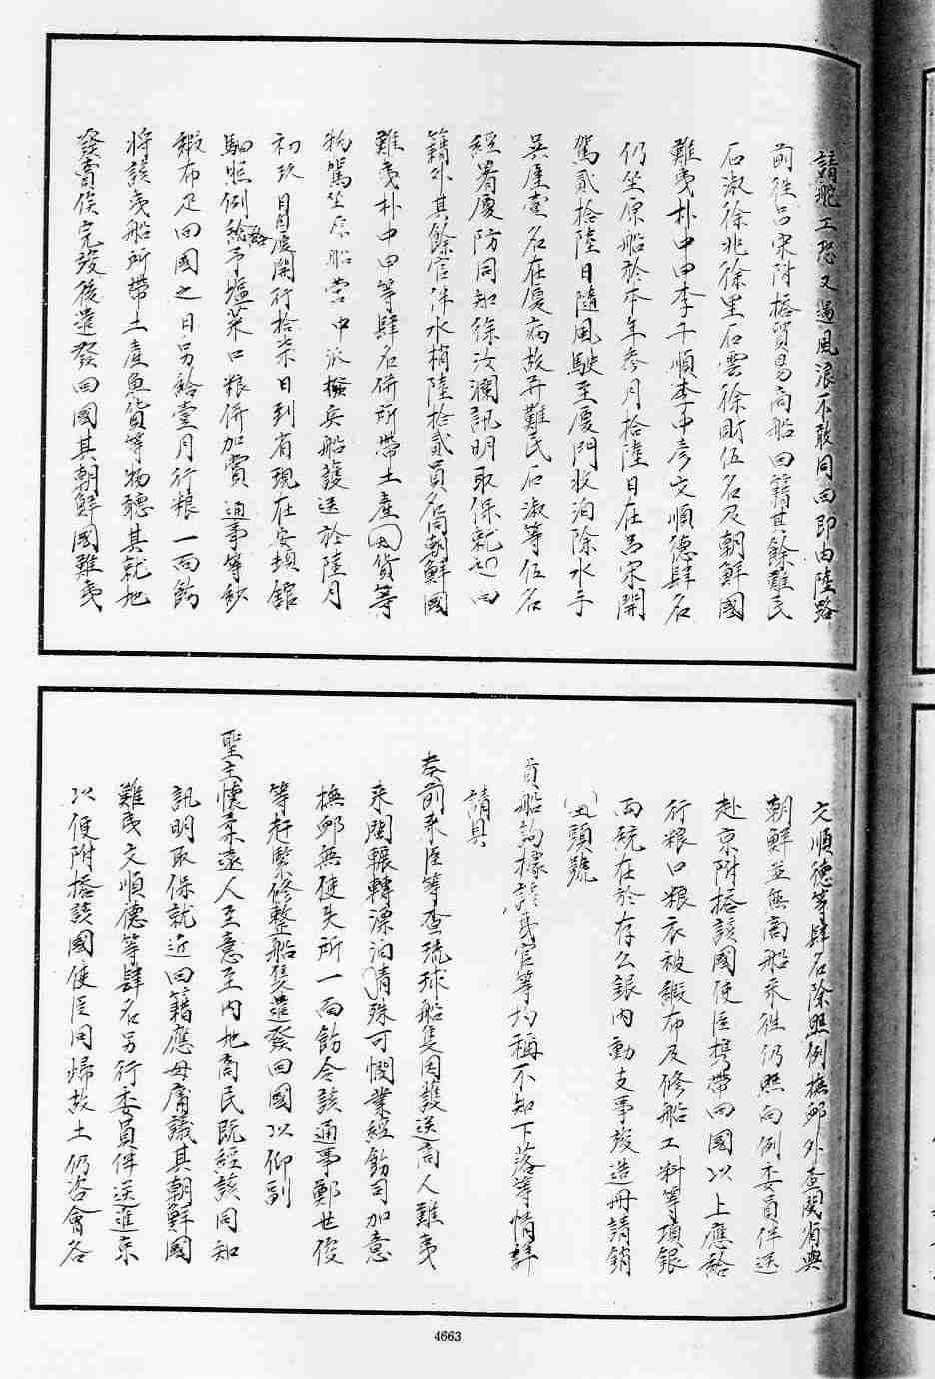 請舵工恐又遇風浪不敢同回即由陸路
前徃呂宋附搭貿易商船回籍其餘難民
石淑徐兆徐里石雲徐剛伍名及朝鮮國
難夷朴中申李千順李中彦文順德肆名
仍坐原船於本年叁月拾陸日在呂宋開
駕貳拾陸日隨風駛至厦門收泊除水手
吳崖壹名在厦病故并難民石淑等伍名
經署厦防同知徐汝瀾訊明取保就近回
籍外其餘官伴水梢陸拾貳員名同朝鮮國
難夷朴中申等肆名併所帶土產貨等
物駕坐原船營中派撥兵船護送於陸月
初玖日自厦開行拾柒日到省現在安頓館
馹照例給予塩菜口粮併加賞通事等鈔
緞布疋回國之日另給壹月行粮一面飭
將該夷船所帶土產魚貨等物聽其就地
發賣俟完竣後遣發回國其朝鮮國難夷
文順德等肆名除照例撫邺外查閩省與
朝鮮並無商船来徃仍照向例委員伴送
赴京附搭該國使臣携帶回國以上應給
行粮口粮衣被緞布及修船工料等項銀
両統在於存公銀内動支事竣造冊請銷
頭號
貢船詢據該夷官等均稱不知下落等情詳
請具
奏前来臣等查琉球船隻因護送商人難夷
来閩輾轉漂泊情殊可憫業經飭司加意
撫邺無使失所一面飭令該通事鄭世俊
等赶緊修整船隻遣發回國以仰副
聖主懷柔遠人至意至内地商民既經該同知
訊明取保就近回籍應毋庸議其朝鮮國
難夷文順德等肆名另行委員伴送進京
以便附搭該國使臣同歸故土仍咨會各
4663